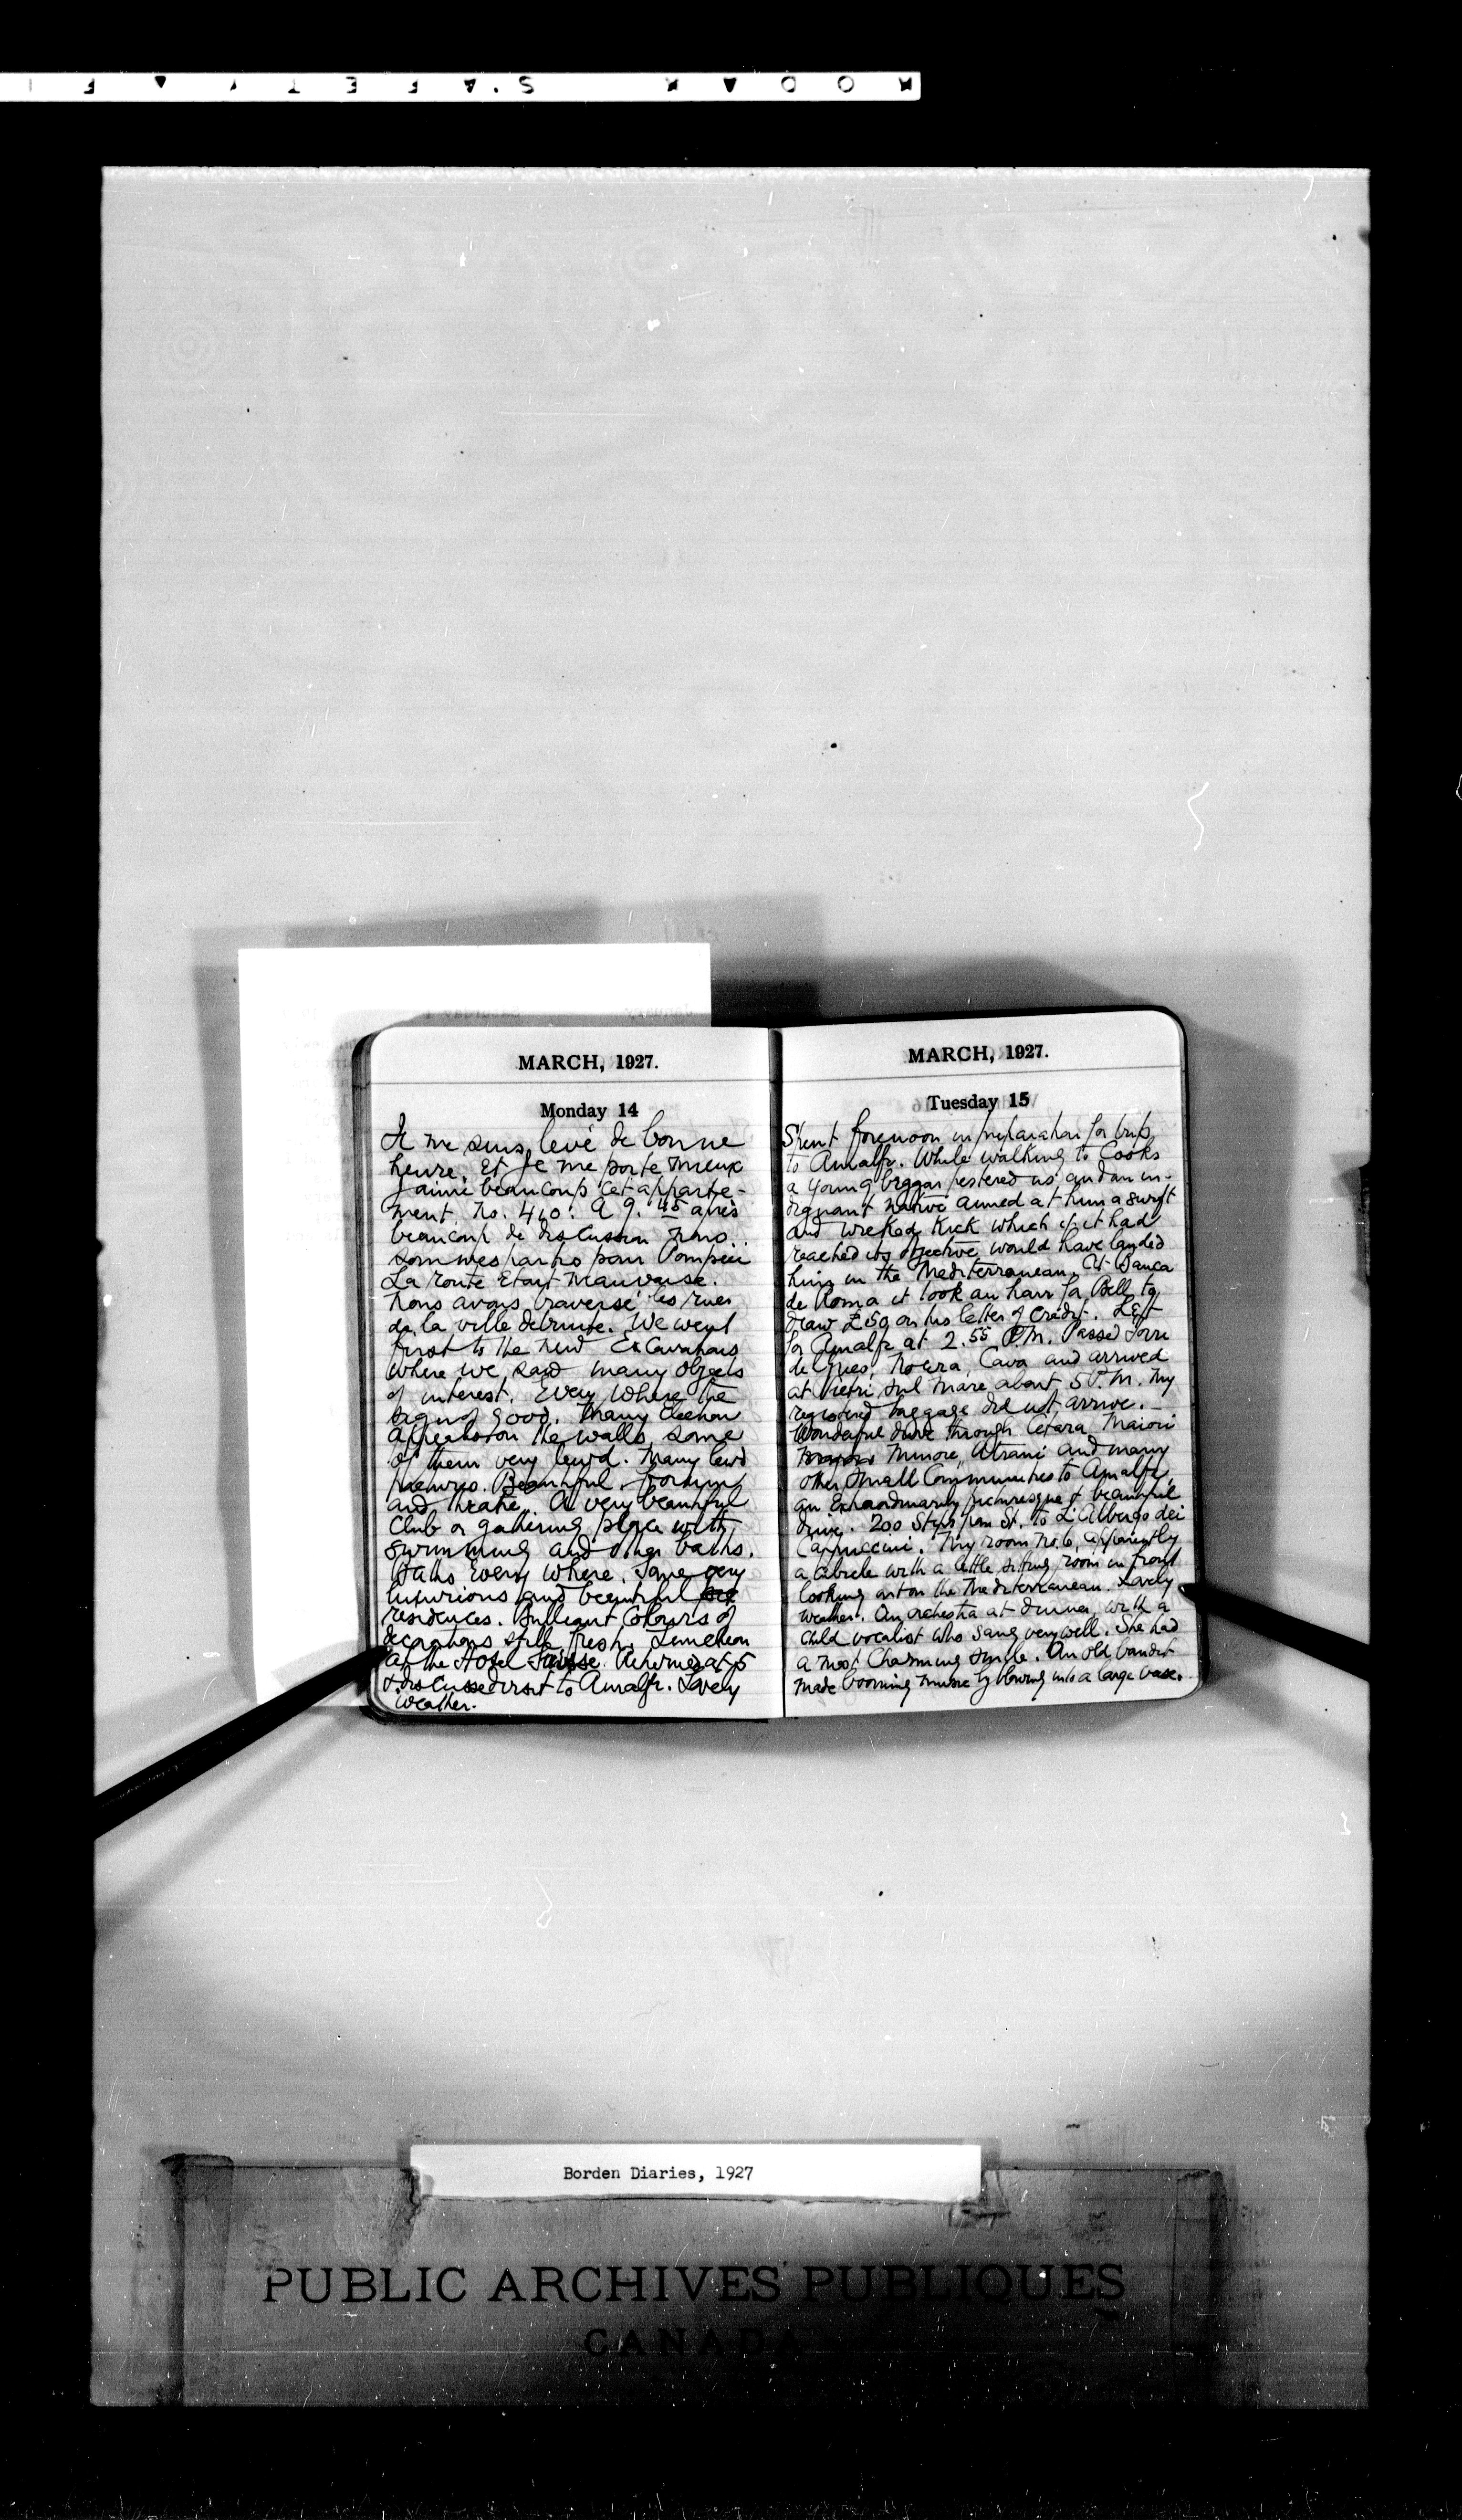 KODAK S.AFETY F
MARCH, 1927.
Monday 14
Je me suis levé de bonne
heure, et je me porte mieux
J'aime beaucoup cet apparte-
ment No. 410. A 9.45 après
beaucoup de discussion nous
sommes partis pour Pompeii
La route etait mauvaise.
Nous avons traversé les rues
de la ville detruite. We went
first to the new Excavations
where we saw many objects
of interest. Every where the
sign of good. Many election
appeals on the walls some
of them very lewd. Many lewd
pictures. Beautiful forum
and theatre. A very beautiful
Club or gathering place with
swimming and other baths.
Baths every where. Some very
luxurious and beautiful
residences. Brilliant colours of
decorations still fresh. Luncheon
at the Hotel Suisse. Returned at 5
& discussed visit to Amalfi. Lovely
weather.
MARCH, 1927.
Tuesday 15
Spent forenoon in preparation for trip
to Amalfi. While walking to Cooks
a young beggar pestered us and an in-
dignant native aimed at him a swift
and wicked kick which if it had
reached its objective would have landed
him in the Mediterranean. At Banca
de Roma it took an hour for Bell to
draw £50 on his letter of credit. Left
for Amalfi at 2.55 P.M. Passed Torre
del Greco, Nocera, Cava and arrived
at Vietri sul Mare about 5 P.M. My
registered baggage did not arrive.-
Wonderful drive through Cetara, Maiori
Minore, Atrani and many
other small Communities to Amalfi
an extraordinarily picturesque & beautiful
drive. 200 steps from St. to L'Albergo dei
Cappuccini. My room No. 6, apparently
a cubicle with a little sitting room in front
looking out on the Mediterranean. Lovely
weather. An orchestra at dinner with a
child vocalist who sang very well. She had
a most charming smile. An old bandit
made booming music by blowing into a large vase.
Borden Diaries, 1927
PUBLIC ARCHIVES PUBLIQUES
CANADA